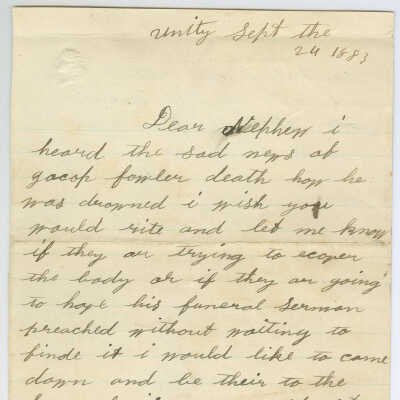 Unity Sept the
24 1883
Dear Nephew i
heard the sad news of
gacop fowler death how he
was drowned i wish you
would rite and let me know
if they ar trying to ecover
the body or if they ar going
to have his funeral sermon
preached without waiting to
finde it i would like to come
down and be their to the